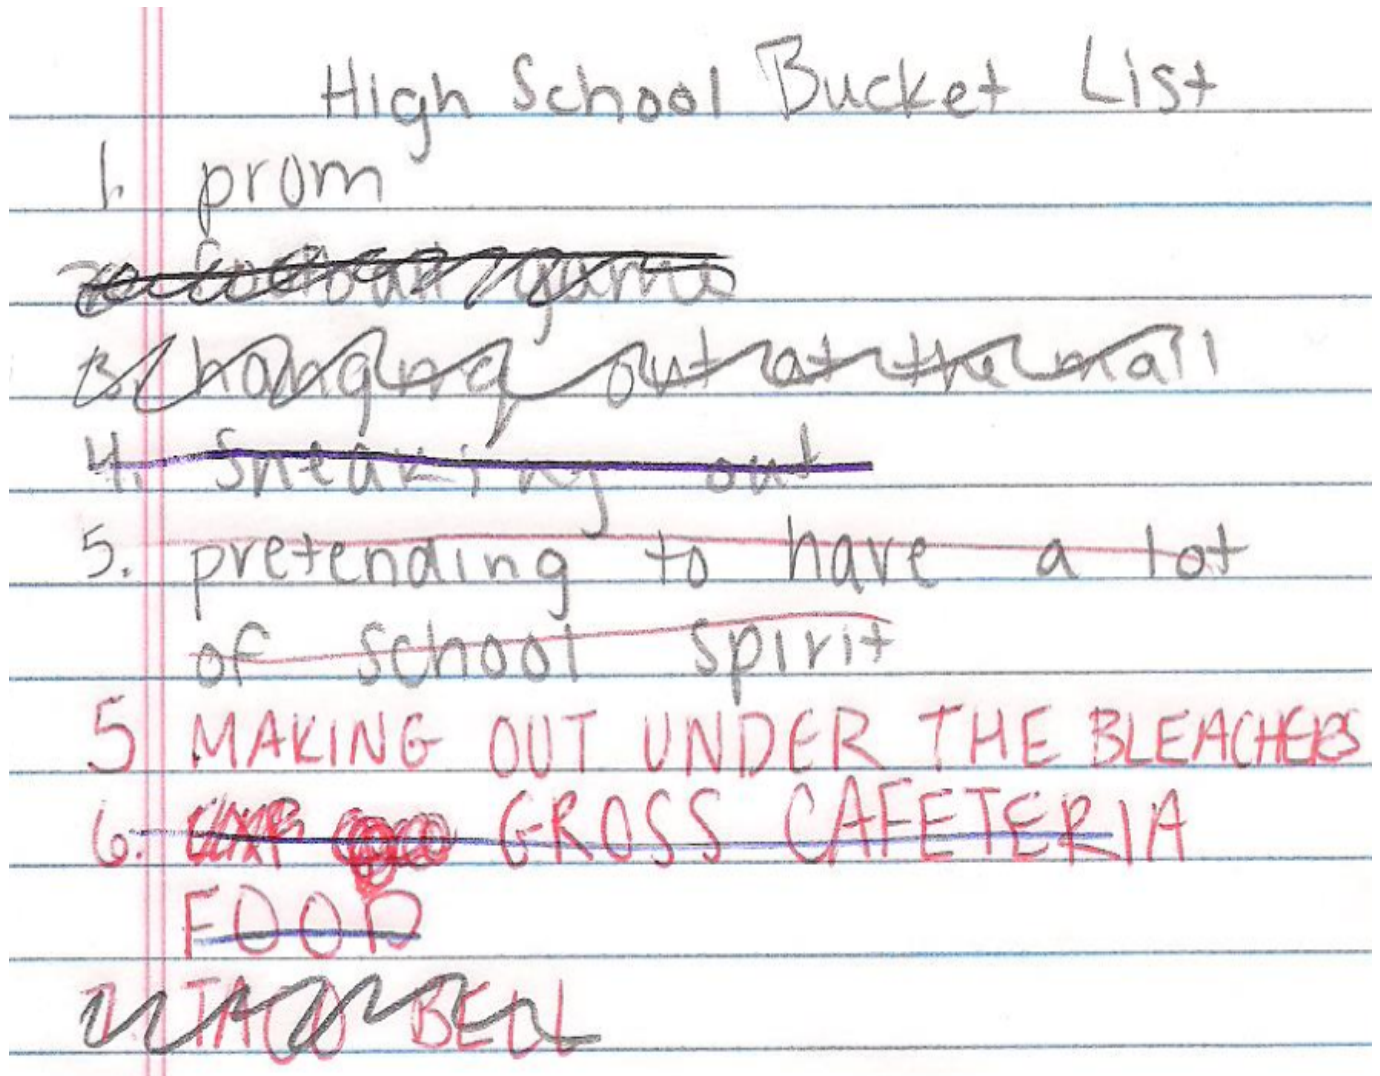 High School Bucket List
1. prom
2. football game
3. hanging out at the mall
4. Sneaking out
5. pretending to have a lot
of school spirit
5 MAKING OUT UNDER THE BLEACHERS
6. GROSS CAFETERIA
FOOD
7. TACO BELL